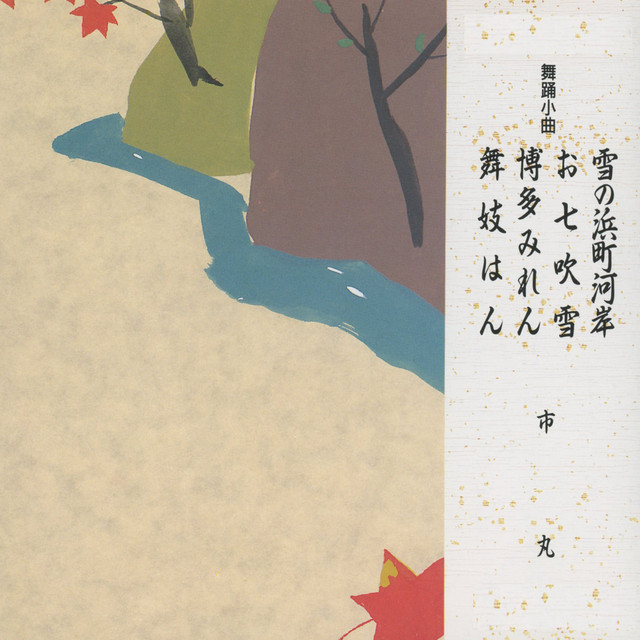 舞踊小曲
雪の浜町河岸
お七吹雪
博多みれん
舞妓はん
市丸